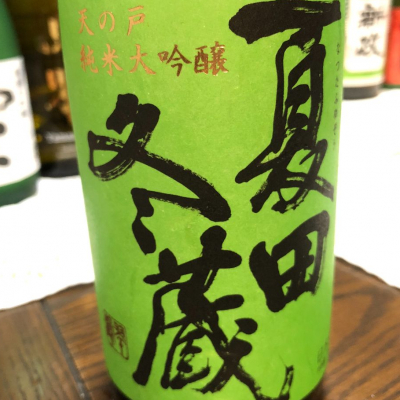 天の戸
純米大吟醸
夏田
冬蔵